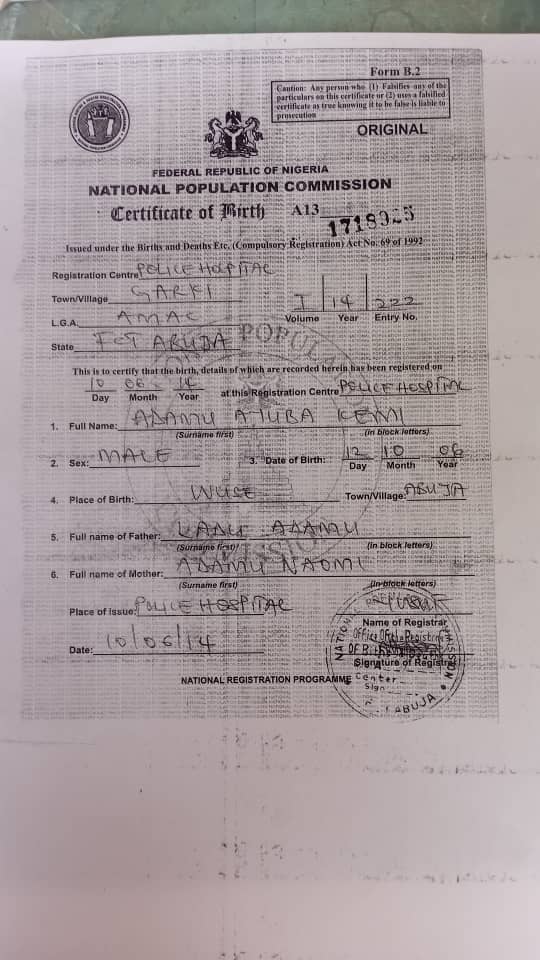 Form B.2
Caution: Any person who (1) Falsifies any of the
particulars on this certificate or (2) uses a falsified
certificate as true knowing it to be false is liable to
prosecution
ORIGINAL
FEDERAL REPUBLIC OF NIGERIA
NATIONAL POPULATION COMMISSION
Certificate of Birth A13 1718925
Issued under the Births and Deaths Etc. (Compulsory Registration) Act No. 69 of 1992
Registration Centre POLICE HOSPITAL
Town/Village GARKI
I 14 222
Volume Year Entry No.
L.G.A. AMAC
State FCT ABUJA
This is to certify that the birth, details of which are recorded herein has been registered on
10 06 14 at this Registration Centre POLICE HOSPITAL
Day Month Year
1. Full Name: ADAMU AJUBA KEMI
(Surname first) (in block letters)
2. Sex: MALE 3. Date of Birth: 12 10 06
Day Month Year
4. Place of Birth: WUSE Town/Village: ABUJA
5. Full name of Father: ADAMU
(Surname first) (in block letters)
6. Full name of Mother: ADAMU NAOMI
(Surname first) (in block letters)
Place of issue: POLICE HOSPITAL
Name of Registrar
Date: 10/06/14
Office Of the Registrar
Signature of Registrar
NATIONAL REGISTRATION PROGRAMME
Center
Sign
ABUJA